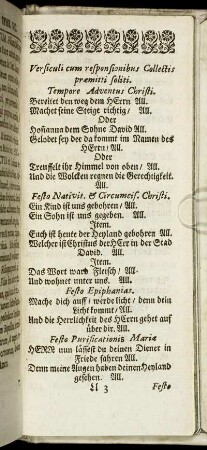 Versiculi cum responsionibus Collectis
præmitti soliti.
Tempore Adventus Christi.
Bereitet den weg dem HErrn All.
Machet seine Steige richtig/ All.
Oder
Hosianna dem Sohne David All.
Gelobet sey der da kommt im Namen des
HErrn/ All.
Oder
Treuffelt ihr Himmel von oben/ All.
Und die Wolcken regnen die Gerechtigkeit.
All.
Festo Nativit. & Circumcis. Christi.
Ein Kind ist uns gebohren/ All.
Ein Sohn ist uns gegeben. All.
Item.
Euch ist heute der Heyland gebohren All.
Welcher ist Christus der HErr in der Stad
David. All.
Item.
Das Wort ward Fleisch/ All.
Und wohnet unter uns. All.
Festo Epiphanias.
Mache dich auff/ werde licht/ denn dein
Licht kommt/ All.
Und die Herrlichkeit des HErrn gehet auf
über dir. All.
Festo Purificationis Mariæ
HERR nun lässest du deinen Diener in
Friede fahren All.
Denn meine Augen haben deinen Heyland
gesehen. All.
Ll 3 Festo